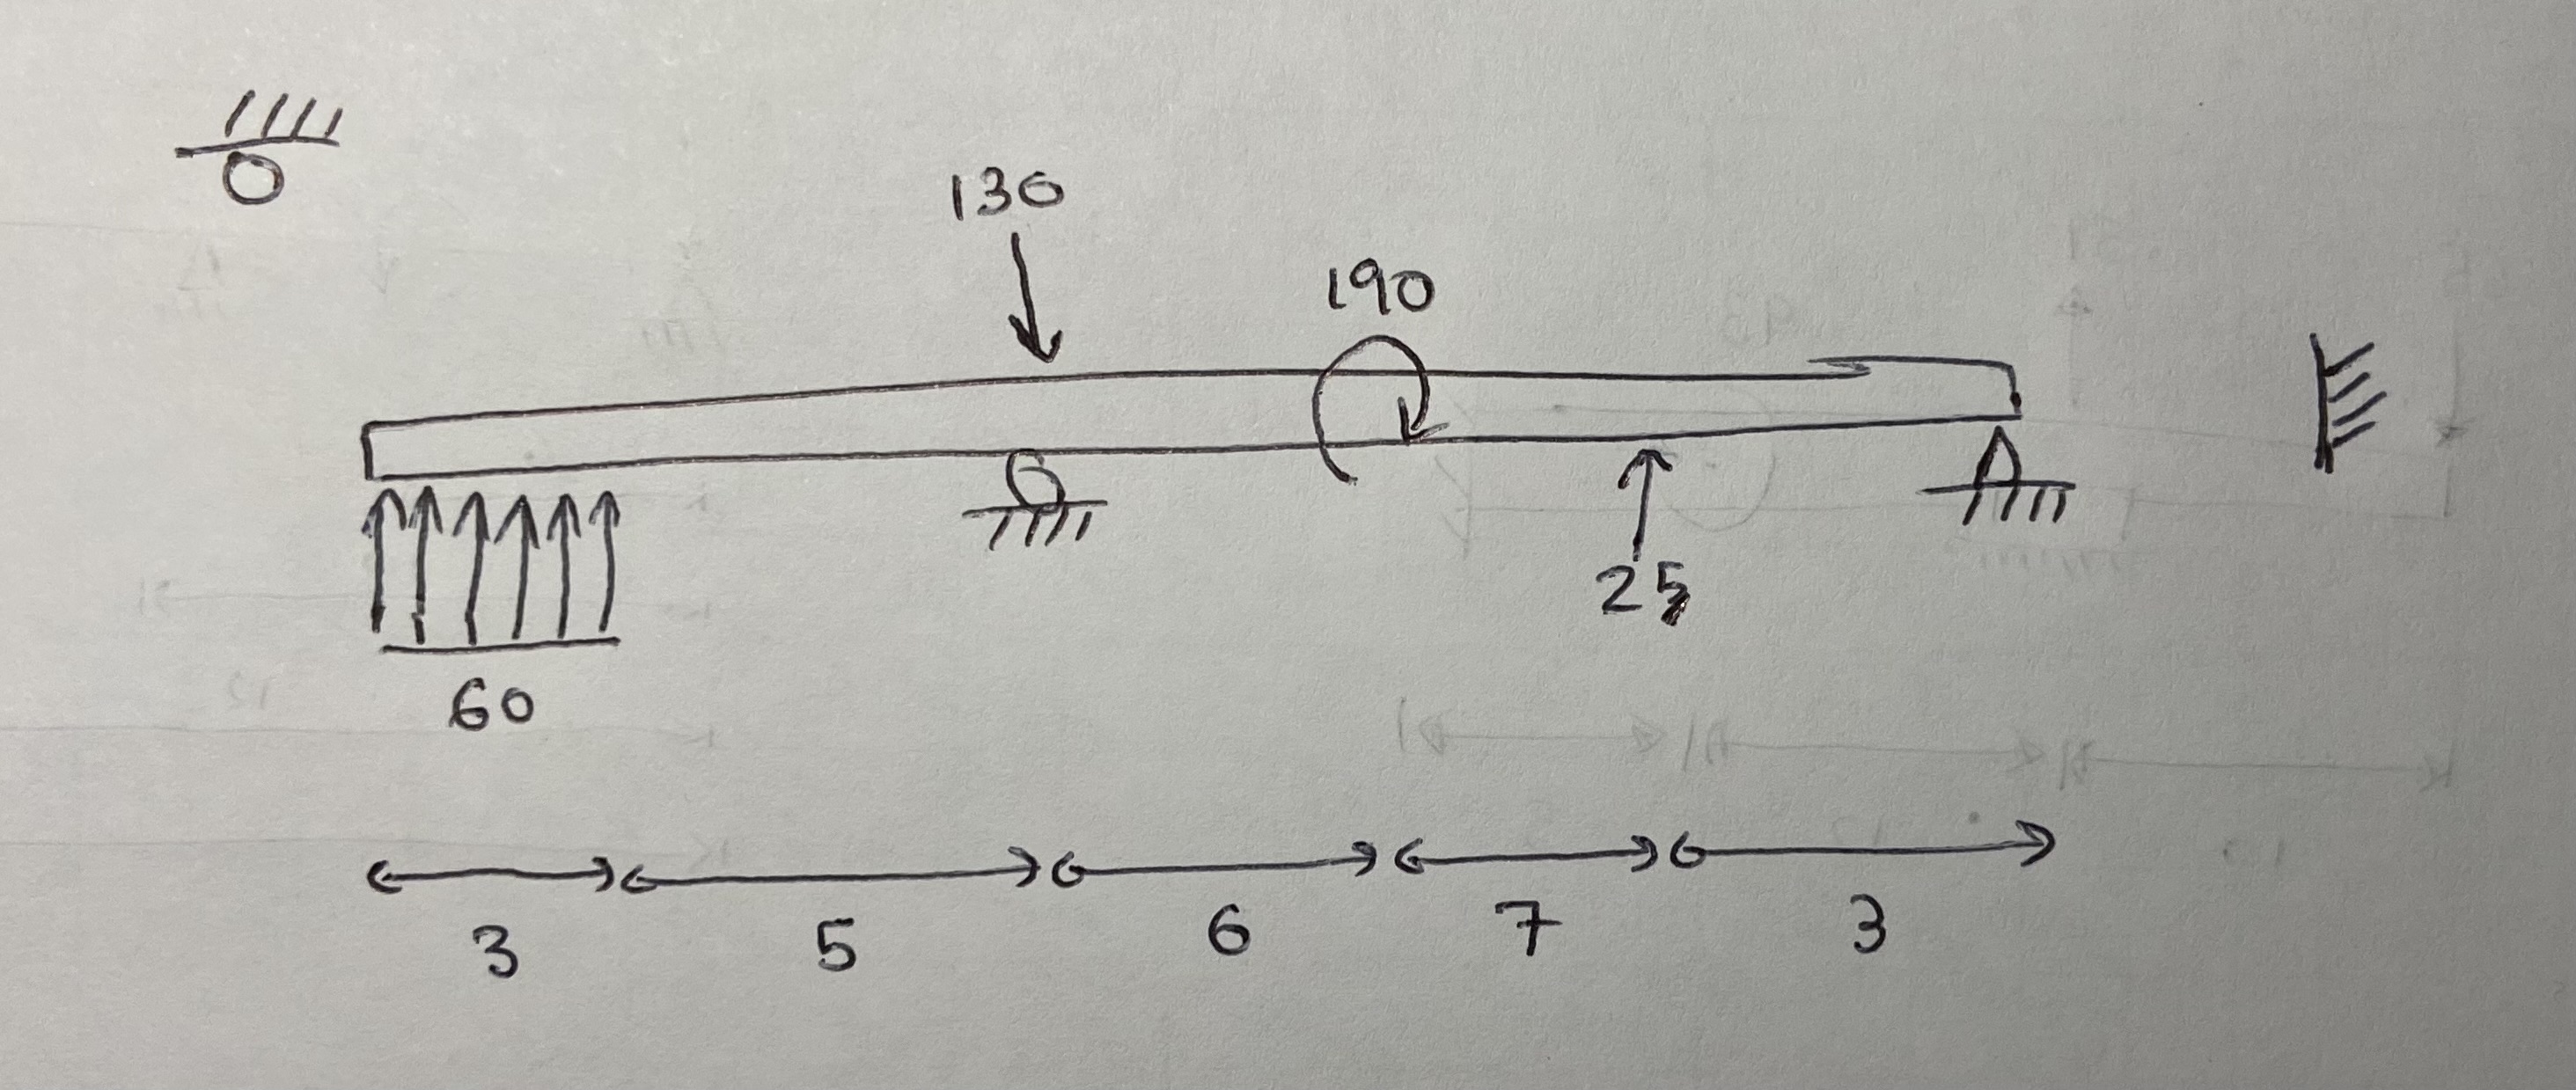 130
190
25
60
3 5 6 7 3